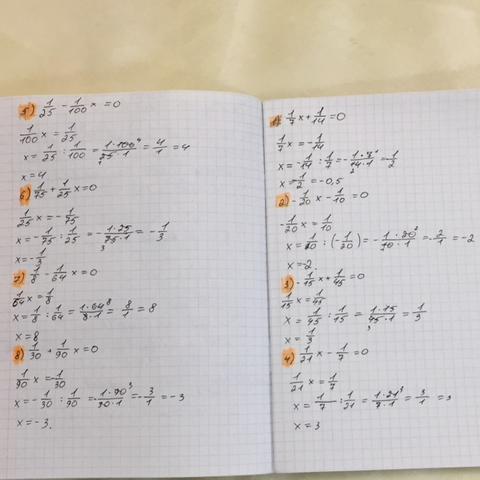 5) 1/25 - 1/100 x = 0
1/100 x = 1/25
x = 1/25 : 1/100 = 1·100/25·1 = 4/1 = 4
x = 4
6) 1/75 + 1/25 x = 0
1/25 x = - 1/75
x = - 1/75 : 1/25 = - 1·25/75·1 = - 1/3
x = - 1/3
7) 1/8 - 1/64 x = 0
1/64 x = 1/8
x = 1/8 : 1/64 = 1·64/8·1 = 8/1 = 8
x = 8
8) 1/30 + 1/90 x = 0
1/90 x = - 1/30
x = - 1/30 : 1/90 = - 1·90/30·1 = - 3/1 = -3
x = -3.
1) 1/7 x + 1/14 = 0
1/7 x = - 1/14
x = - 1/14 : 1/7 = - 1·7/14·1 = 1/2
x = - 1/2 = -0,5
2) - 1/20 x - 1/10 = 0
- 1/20 x = 1/10
x = 1/10 : (- 1/20) = - 1·20/10·1 = - 2/1 = -2
x = -2.
3) - 1/15 x + 1/45 = 0
1/15 x = 1/45
x = 1/45 : 1/15 = 1·15/45·1 = 1/3
x = 1/3
4) 1/21 x - 1/7 = 0
1/21 x = 1/7
x = 1/7 : 1/21 = 1·21/7·1 = 3/1 = 3
x = 3